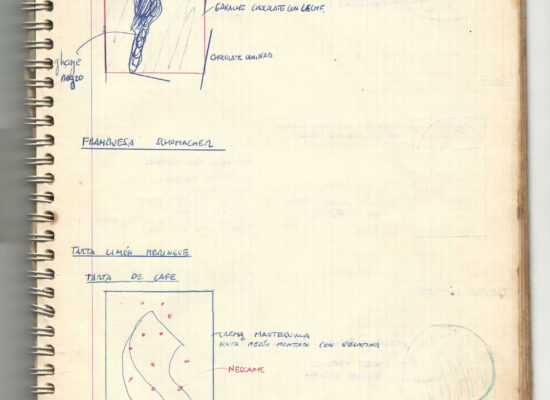 GANACHE CHOCOLATE CON LECHE.
CHOCOLATE LAMINAD
glaçage
negro
FRAMBUESA SCHOMACHER
TARTA LIMÓN MERINGUE
TARTA DE CAFE
CREMA MANTEQUILLA
NATA MEDIO MONTADA CON GELATINA
NESCAFE